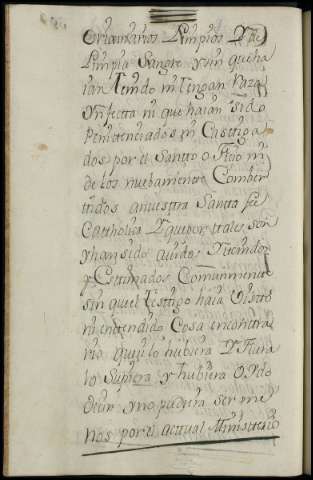 Cristianos Limpios Y de
Limpia Sangre y sin que ha
ian tenido ni tengan Raza
ynfecta ni que haian sido
Penitenciados ni Castiga
dos por el Santto oficio ni
de los nuebamente Comber
tidos a nuesttra Santta fee
Cattholica Y que por tales son
y han sido auidos Y tenidos
y Esttimados Comunmente
sin que el testtigo haia Vistto
ni entendido Cosa en contra
rio que si lo hubiera Y fuera
lo Supiera y hubiera oydo
decir y no pudiera ser me
nos por el acttual Ministterio